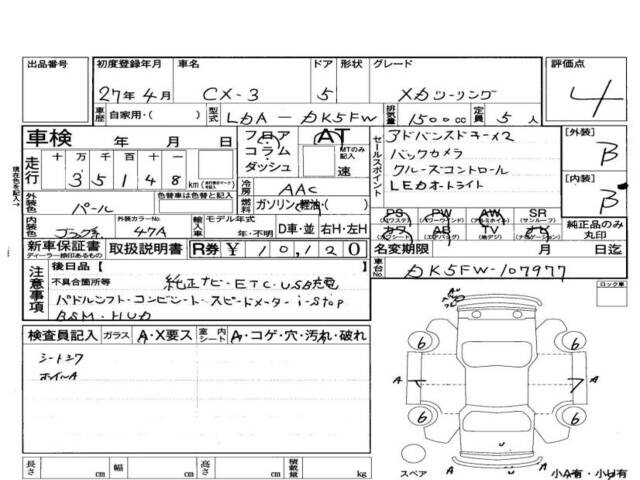 出品番号 初度登録年月 車名 ドア 形状 グレード 評価点
27年4月 CX-3 5 XDツーリング 4
車歴 自家用・( ) 型式 LDA-DK5FW 排気量 1500cc 定員 5人
車検 年 月 日 フロア コラム ダッシュ AT MTのみ記入 速
走行 十 万 千 百 十 一
3 5 1 4 8 km
冷房 AAC
燃料 ガソリン・軽油・( )
セールスポイント
アドバンストキー×2
バックカメラ
クルーズコントロール
LEDオートライト
[外装] B
[内装] B
現在色を記入
外装色 パール 色替車は色替と記入
内装色 ブラック系 外装カラーNo. 47A 輸入車 モデル年式 年・不明 D車・並 右H・左H
PS (パワステ) PW (パワーウインド) AW (アルミホイル) SR (サンルーフ)
カワ (革シート) AB (エアバッグ) TV (地デジ) ナビ (ナビゲーション)
純正品のみ丸印
新車保証書 ディーラー捺印あるもの 取扱説明書 R券 ¥10,120
名変期限 月 日迄
車台No. DK5FW-107977
注意事項
後日品 [ ]
不具合箇所等 純正ナビ・ETC・USB充電
パドルシフト・コンビハント・スピードメーター・i-stop
BSM・HUD
ロック車
検査員記入 ガラス A・X要ス 室内シート A・コゲ・穴・汚れ・破れ
シートシワ
ホイルA
6 6
A A
6 6
スペア A 小A有・小U有
長さ cm 幅 cm 高さ cm 積載量 kg